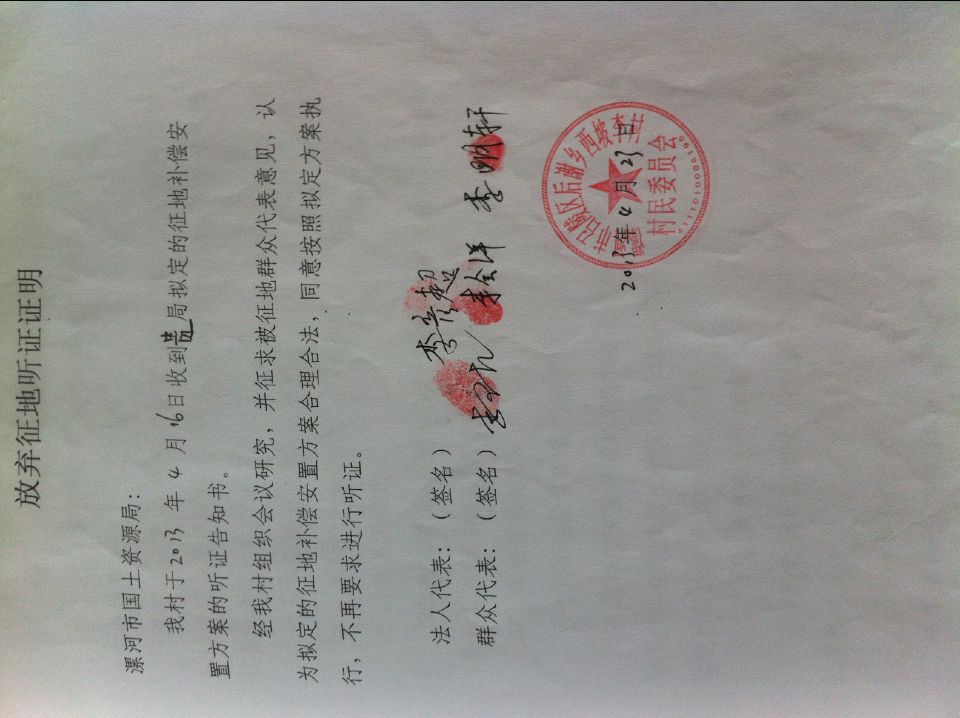 放弃征地听证证明
漯河市国土资源局：
我村于2013年4月16日收到贵局拟定的征地补偿安
置方案的听证告知书。
经我村组织会议研究，并征求被征地群众代表意见，认
为拟定的征地补偿安置方案合理合法，同意按照拟定方案执
行，不再要求进行听证。
法人代表：（签名）李彦超
群众代表：（签名）李全洋 李明轩
2013年4月23日
市召陵区后谢乡西皋李村
村民委员会